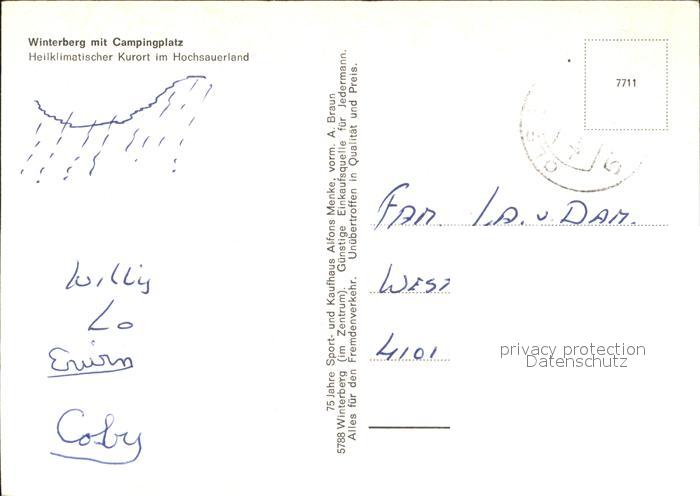 Winterberg mit Campingplatz
Heilklimatischer Kurort im Hochsauerland
Willy
Lo
Erwin
Coby
75 Jahre Sport- und Kaufhaus Alfons Menke, vorm. A. Braun
5788 Winterberg (im Zentrum). Günstige Einkaufsquelle für Jedermann.
Alles für den Fremdenverkehr. Unübertroffen in Qualität und Preis.
7711
FAM. I.A. v. DAM.
WEST
4101
privacy protection
Datenschutz